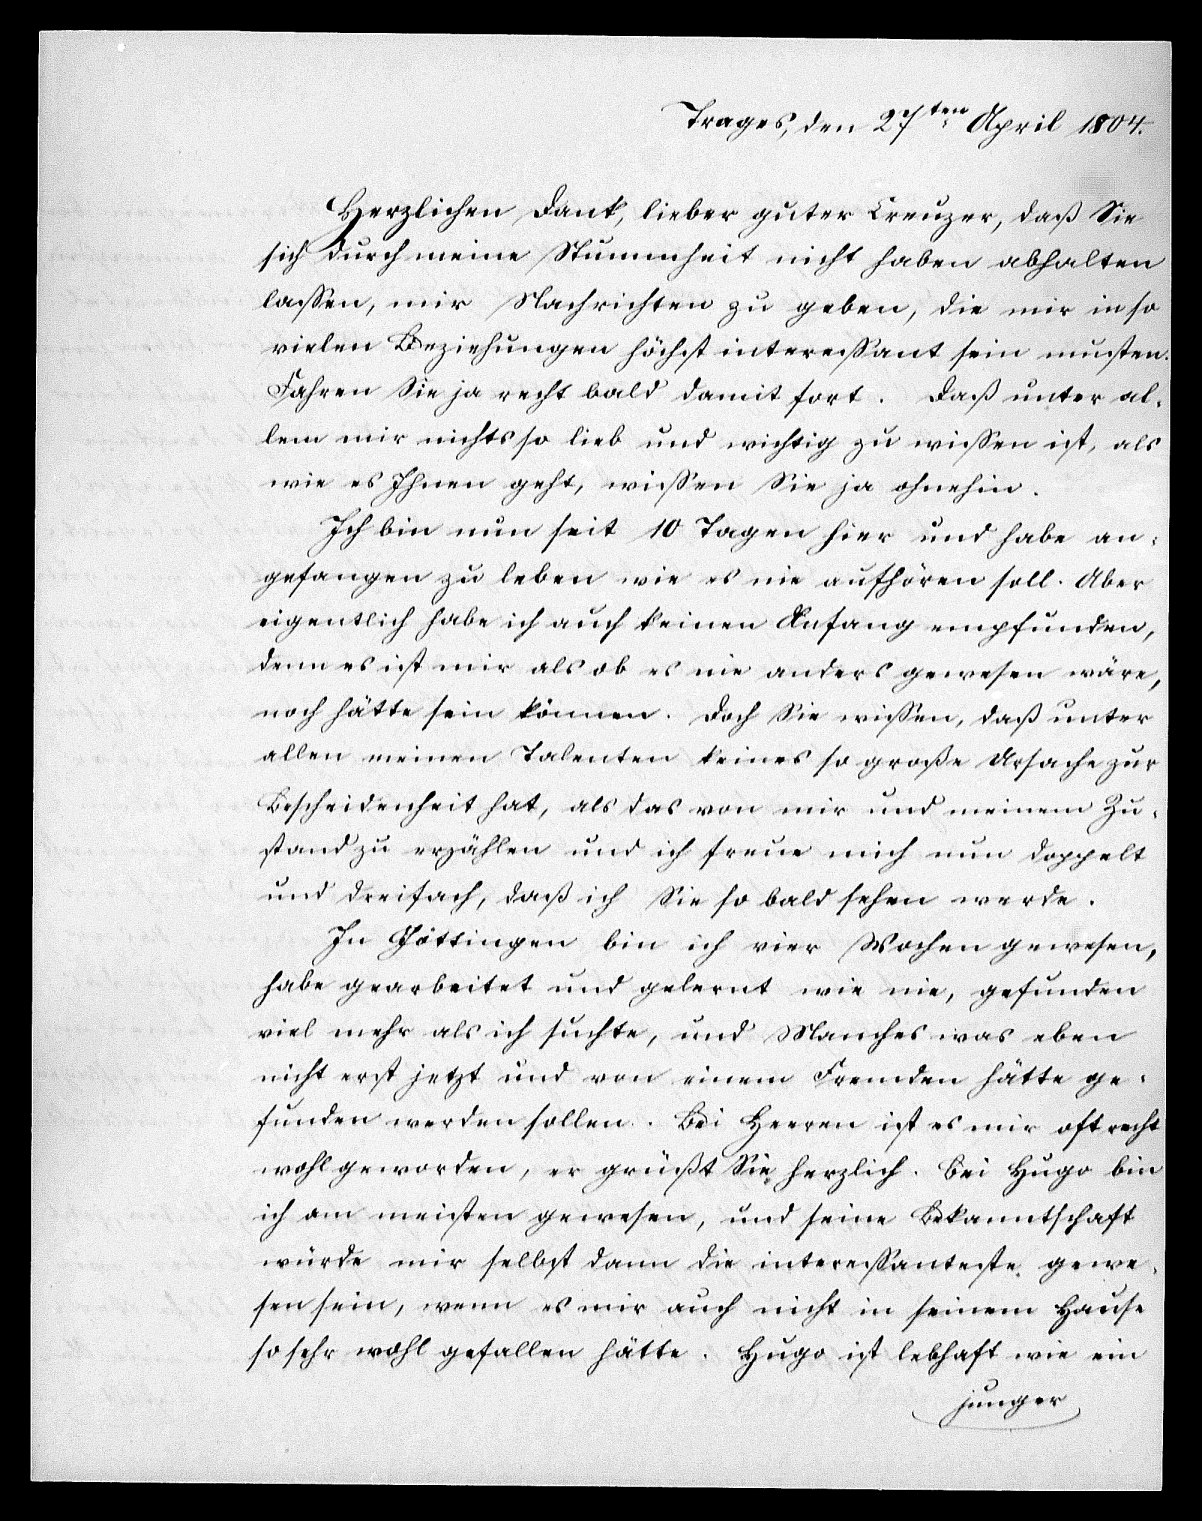 Trages, den 27ten April 1804.
Herzlichen Dank, lieber guter Creuzer, daß Sie
sich durch meine Stummheit nicht haben abhalten
lassen, mir Nachrichten zu geben, die mir in so
vielen Beziehungen höchst interessant sein musten.
Fahren Sie ja recht bald damit fort. Daß unter al-
lem mir nichts so lieb und wichtig zu wissen ist, als
wie es Ihnen geht, wissen Sie ja ohnehin.
Ich bin nun seit 10 Tagen hier und habe an-
gefangen zu leben wie es nie aufhören soll. Aber
eigentlich habe ich auch keinen Anfang empfunden,
denn es ist mir als ob es nie anders gewesen wäre,
noch hätte sein können. Doch Sie wissen, daß unter
allen meinen Talenten keines so große Ursache zur
Bescheidenheit hat, als das von mir und meinem Zu-
stand zu erzählen und ich freue mich nun doppelt
und dreifach, daß ich Sie so bald sehen werde.
In Göttingen bin ich vier Wochen gewesen,
habe gearbeitet und gelernt wie nie, gefunden
viel mehr als ich suchte, und Manches was eben
nicht erst jetzt und von einem Fremden hätte ge-
funden werden sollen. Bei Heeren ist es mir oft recht
wohl geworden, er grüßt Sie herzlich. Bei Hugo bin
ich am meisten gewesen, und seine Bekanntschaft
würde mir selbst dann die interessanteste gewe-
sen sein, wenn es mir auch nicht in seinem Hause
so sehr wohl gefallen hätte. Hugo ist lebhaft wie ein
junger